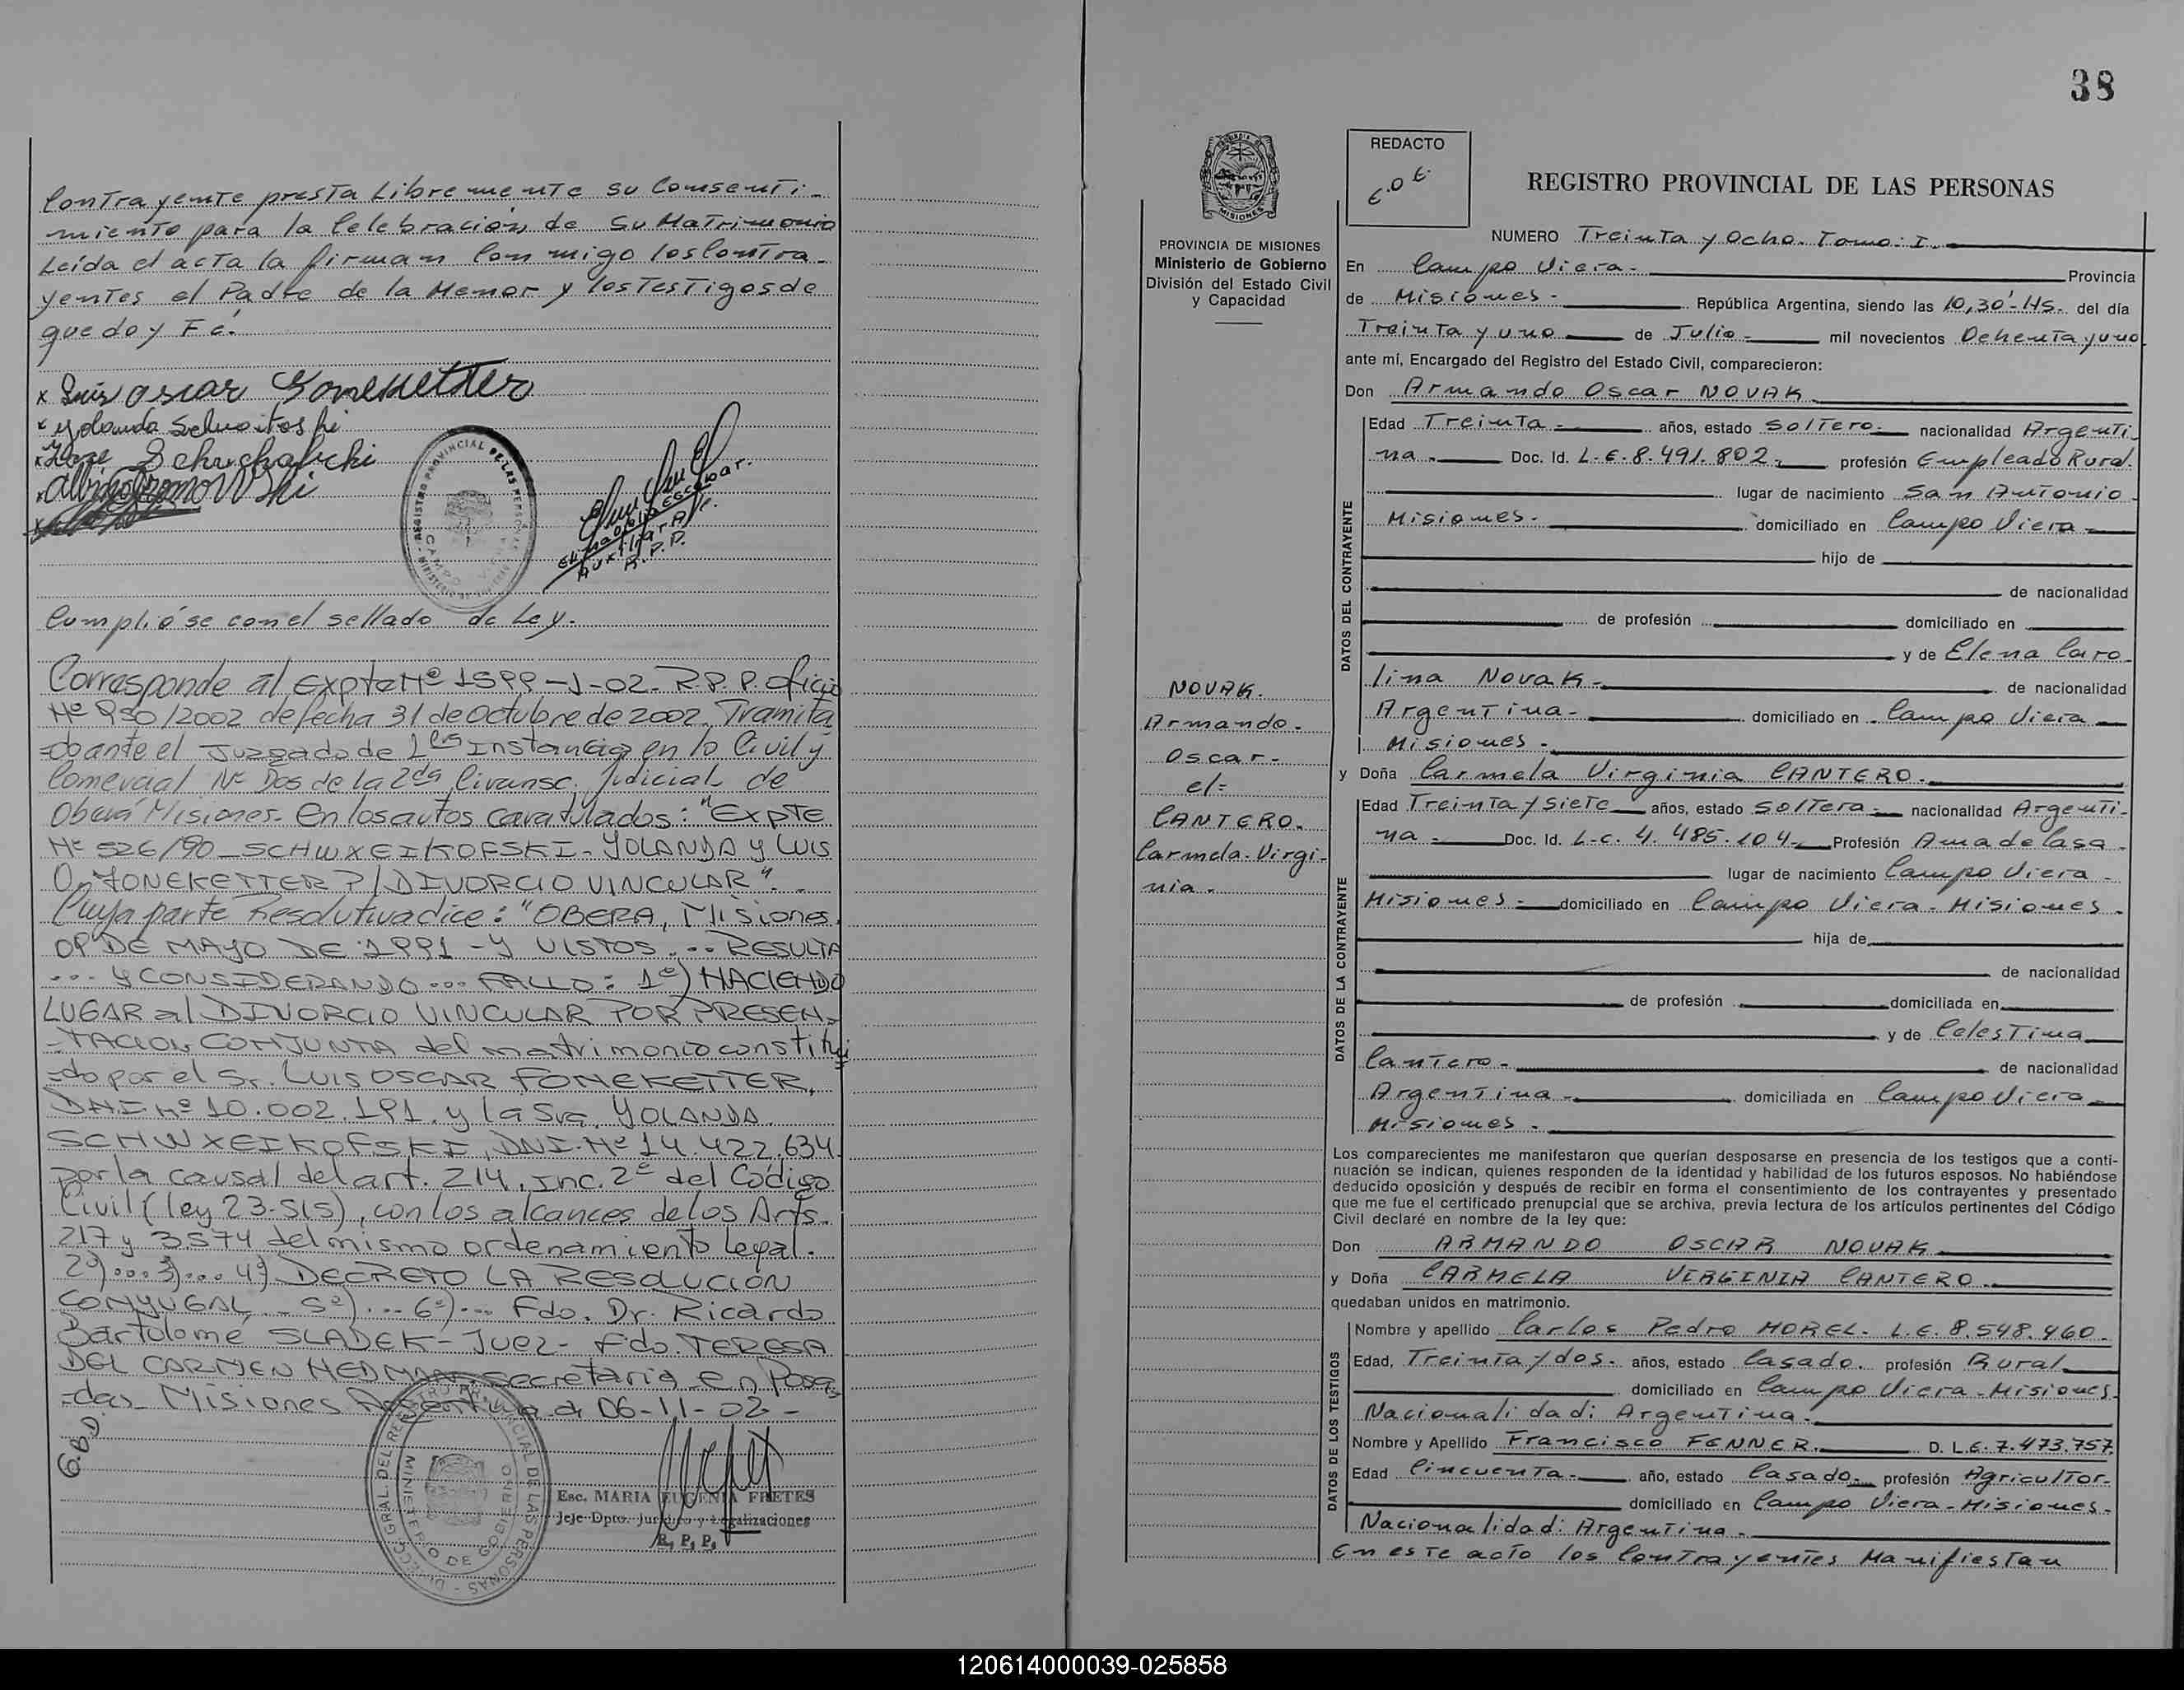 Contrayente presta Libremente su Consenti-
miento para la Celebración de Su Matrimonio
Leída el acta la firman Conmigo los Contra-
yentes el Padre de la Menor y los Testigos de
que doy Fé.
x Luis Oscar Foneketter
x Yolanda
x Jose
x
Elsa Escobar.
Auxiliar A/c.
R.P.P.
REGISTRO PROVINCIAL DE LAS PERSONAS
Cumplióse con el sellado de Ley.
Corresponde al Expte Nº 1599-J-02. R.P.P. oficio
Nº 950/2002 de fecha 31 de Octubre de 2002. Tramita
=do ante el Juzgado de 1era Instancia en lo Civil y
Comercial Nº Dos de la 2da Circunsc. Judicial de
Oberá Misiones. En los autos caratulados: "EXPTE
Nº 526/90 - SCHWXEIKOFSKI - YOLANDA Y LUIS
O. FONEKETTER ?/DIVORCIO VINCULAR".
Cuya parte Resolutiva dice: "OBERA, Misiones.
09 DE MAYO DE 1991 - Y VISTOS ... RESULTA
... Y CONSIDERANDO ... FALLO: 1º) HACIENDO
LUGAR al DIVORCIO VINCULAR POR PRESEN-
-TACION CONJUNTA del matrimonio constitui
=do por el Sr. LUIS OSCAR FONEKETTER,
DNI Nº 10.002.191. y la Sra. YOLANDA
SCHWXEIKOFSKI, DNI. Nº 14.422.634
por la causal del art. 214, inc. 2º del Código
Civil (ley 23.515), con los alcances de los Arts.
217 y 3.574 del mismo ordenamiento Legal.
2º)...3º)... 4º) DECRETO LA RESOLUCION
CONYUGAL - 5º)... 6º)... Fdo. Dr. Ricardo
Bartolomé SLADEK - Juez - Fdo. TERESA
DEL CARMEN HEDMAN secretaria en Posa
=das Misiones Argentina a 06-11-02-
G.B.D.
Esc. MARIA EUGENIA FRETES
Jefe Dpto. Jurídico y Legalizaciones
R. P. P.
DIRECC. GRAL. DEL REGISTRO PROVINCIAL DE LAS PERSONAS
MINISTERIO DE GOBIERNO
38
REDACTO
E.O.E.
REGISTRO PROVINCIAL DE LAS PERSONAS
MISIONES
PROVINCIA DE MISIONES
Ministerio de Gobierno
División del Estado Civil
y Capacidad
NOVAK.
Armando-
Oscar-
el=
CANTERO.
Carmela-Virgi-
nia.
NUMERO Treinta y Ocho. Tomo: I.
En Campo Viera- Provincia
de Misiones- República Argentina, siendo las 10,30'-Hs. del día
Treinta y uno de Julio- mil novecientos Ochenta y uno
ante mí, Encargado del Registro del Estado Civil, comparecieron:
Don Armando Oscar NOVAK.
DATOS DEL CONTRAYENTE
Edad Treinta- años, estado Soltero- nacionalidad Argenti-
na.- Doc. Id. L-E-8.491.802- profesión Empleado Rural.
lugar de nacimiento San Antonio-
Misiones- domiciliado en Campo Viera-
hijo de
de nacionalidad
de profesión domiciliado en
y de Elena Caro-
lina Novak- de nacionalidad
Argentina- domiciliado en Campo Viera
Misiones-
y Doña Carmela Virginia CANTERO.
DATOS DE LA CONTRAYENTE
Edad Treinta y Siete años, estado Soltera- nacionalidad Argenti-
na- Doc. Id. L-C. 4.485.104- Profesión Ama de Casa-
lugar de nacimiento Campo Viera-
Misiones- domiciliado en Campo Viera-Misiones-
hija de
de nacionalidad
de profesión domiciliada en
y de Celestina
Cantero- de nacionalidad
Argentina- domiciliada en Campo Viera
Misiones-
Los comparecientes me manifestaron que querían desposarse en presencia de los testigos que a conti-
nuación se indican, quienes responden de la identidad y habilidad de los futuros esposos. No habiéndose
deducido oposición y después de recibir en forma el consentimiento de los contrayentes y presentado
que me fue el certificado prenupcial que se archiva, previa lectura de los artículos pertinentes del Código
Civil declaré en nombre de la ley que:
Don ARMANDO OSCAR NOVAK
y Doña CARMELA VIRGINIA CANTERO.
quedaban unidos en matrimonio.
DATOS DE LOS TESTIGOS
Nombre y apellido Carlos Pedro MOREL- L.E. 8.548.460-
Edad, Treinta y dos- años, estado Casado. profesión Rural
domiciliado en Campo Viera-Misiones-
Nacionalidad: Argentina-
Nombre y Apellido Francisco FENNER. D. L.E. 7.473.757
Edad Cincuenta- año, estado Casado- profesión Agricultor-
domiciliado en Campo Viera-Misiones-
Nacionalidad: Argentina-
En este acto los Contrayentes Manifiestan
120614000039-025858